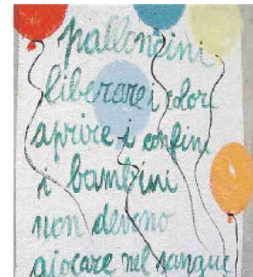 palloncini
liberare i colori
aprire i confini
i bambini
non devono
giocare nel sangue